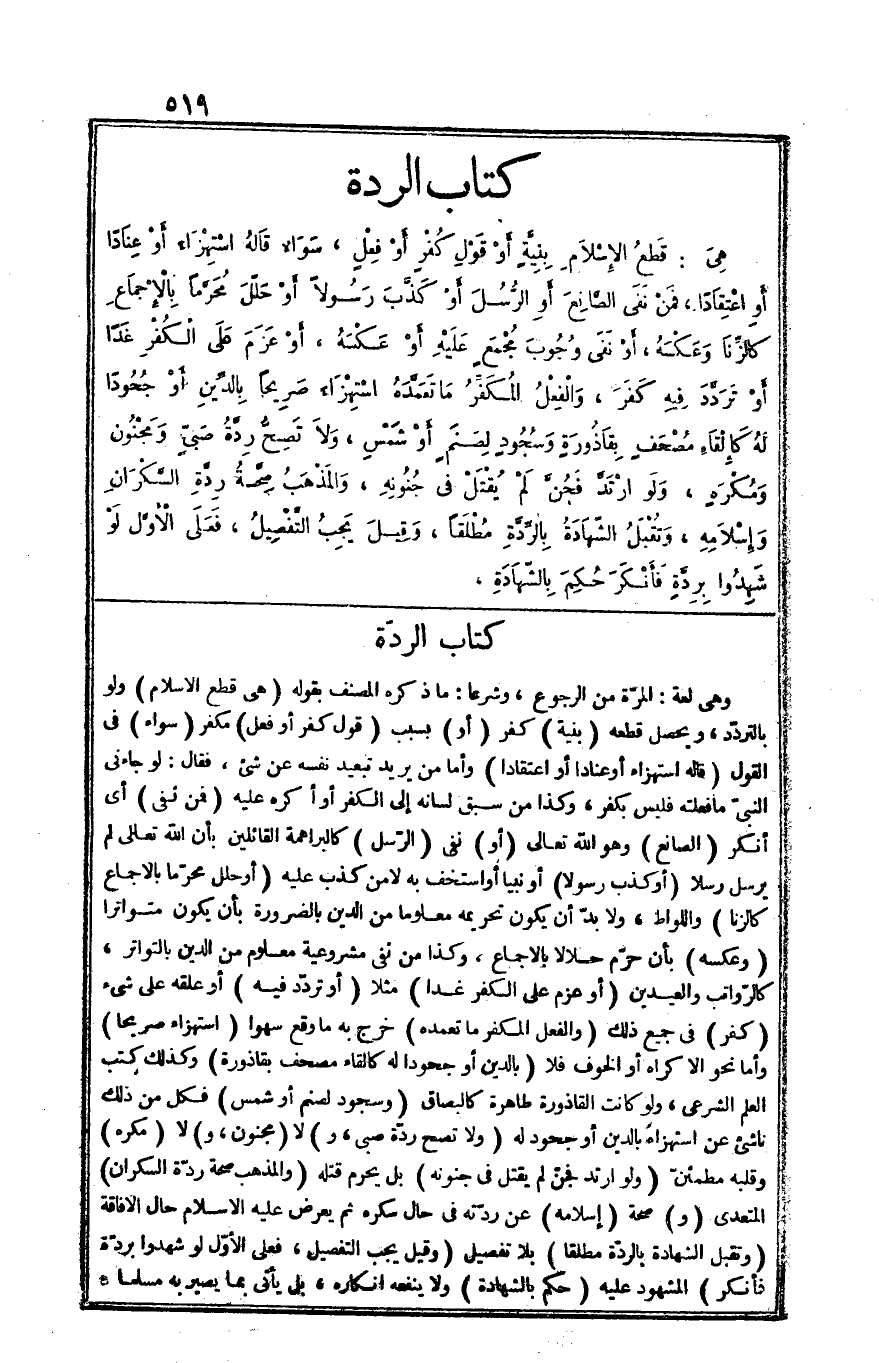 ٥١٩
كتاب الردة
هِىَ : قَطْعُ الإِسْلَامِ بِنِيَّةٍ أَوْ قَوْلِ كُفْرٍ أَوْ فِعْلٍ ، سَوَاءٌ قَالَهُ اسْتِهْزَاءً أَوْ عِنَادًا
أَوِ اعْتِقَادًا ، فَمَنْ نَفَى الصَّانِعَ أَوِ الرُّسُلَ أَوْ كَذَّبَ رَسُولاً أَوْ حَلَّلَ مُحَرَّماً بِالْإِجْمَاعِ
كَالزِّنَا وَعَكْسَهُ ، أَوْ نَفَى وُجُوبَ مُجْمَعٍ عَلَيْهِ أَوْ عَكْسَهُ ، أَوْ عَزَمَ عَلَى الْكُفْرِ غَدًا
أَوْ تَرَدَّدَ فِيهِ كَفَرَ ، وَالْفِعْلُ الْمُكَفِّرُ مَا تَعَمَّدَهُ اسْتِهْزَاءً صَرِيحاً بِالدِّينِ أَوْ جُحُودًا
لَهُ كَإِلْقَاءِ مُصْحَفٍ بِقَاذُورَةٍ وَسُجُودٍ لِصَنَمٍ أَوْ شَمْسٍ ، وَلاَ تَصِحُّ رِدَّةُ صَبِىٍّ وَمَجْنُونٍ
وَمُكْرَهٍ ، وَلَوِ ارْتَدَّ فَجُنَّ لَمْ يُقْتَلْ فِى جُنُونِهِ ، وَالْمَذْهَبُ صِحَّةُ رِدَّةِ السَّكْرَانِ
وَإِسْلَامِهِ ، وَتُقْبَلُ الشَّهَادَةُ بِالرِّدَّةِ مُطْلَقاً ، وَقِيلَ يَجِبُ التَّفْصِيلُ ، فَعَلَى الْأَوَّلِ لَوْ
شَهِدُوا بِرِدَّةٍ فَأَنْكَرَ حُكِمَ بِالشَّهَادَةِ ،
كتاب الردّة
وهى لغة : المرّة من الرجوع ، وشرعا : ماذكره المصنف بقوله ( هى قطع الاسلام ) ولو
بالتردّد ، ويحصل قطعه ( بنية ) كفر ( أو ) بسبب ( قول كفر أو فعل ) مكفر ( سواء ) فى
القول ( قاله استهزاء أوعنادا أو اعتقادا ) وأما من يريد تبعيد نفسه عن شئ ، فقال : لو جاءنى
النبىّ مافعلته فليس بكفر ، وكذا من سبق لسانه إلى الكفر أو أكره عليه ( فمن نفى ) أى
أنكر ( الصانع ) وهو الله تعالى ( أو ) نفى ( الرّسل ) كالبراهمة القائلين بأن الله تعالى لم
يرسل رسلا ( أوكذب رسولا ) أو نبيا أواستخف به لامن كذب عليه ( أوحلل محرّما بالاجماع
كالزنا ) واللواط ، ولا بدّ أن يكون تحريمه معلوما من الدين بالضرورة بأن يكون متواترا
( وعكسه ) بأن حرّم حلالا بالاجماع ، وكذا من نفى مشروعية معلوم من الدين بالتواتر ،
كالرّواتب والعيدين ( أو عزم على الكفر غدا ) مثلا ( أو تردّد فيه ) أو علقه على شىء
( كفر ) فى جميع ذلك ( والفعل المكفر ما تعمده ) خرج به ماوقع سهوا ( استهزاء صريحا )
وأما نحو الاكراه أو الخوف فلا ( بالدين أو جحودا له كالقاء مصحف بقاذورة ) وكذلك كتب
العلم الشرعى ، ولو كانت القاذورة طاهرة كالبصاق ( وسجود لصنم أو شمس ) فكل من ذلك
ناشئ عن استهزاء بالدين أوجحود له ( ولا تصح ردّة صبى ، و ) لا ( مجنون ، و ) لا ( مكره )
وقلبه مطمئنّ ( ولو ارتد فجنّ لم يقتل فى جنونه ) بل يحرم قتله ( والمذهب صحة ردّة السكران )
المتعدى ( و ) صحة ( إسلامه ) عن ردّته فى حال سكره ثم يعرض عليه الاسلام حال الافاقة
( وتقبل الشهادة بالردّة مطلقا ) بلا تفصيل ( وقيل يجب التفصيل ، فعلى الأوّل لو شهدوا بردّة
فأنكر ) المشهود عليه ( حكم بالشهادة ) ولا ينفعه انكاره ، بلى يأتى بما يصير به مسلما ،